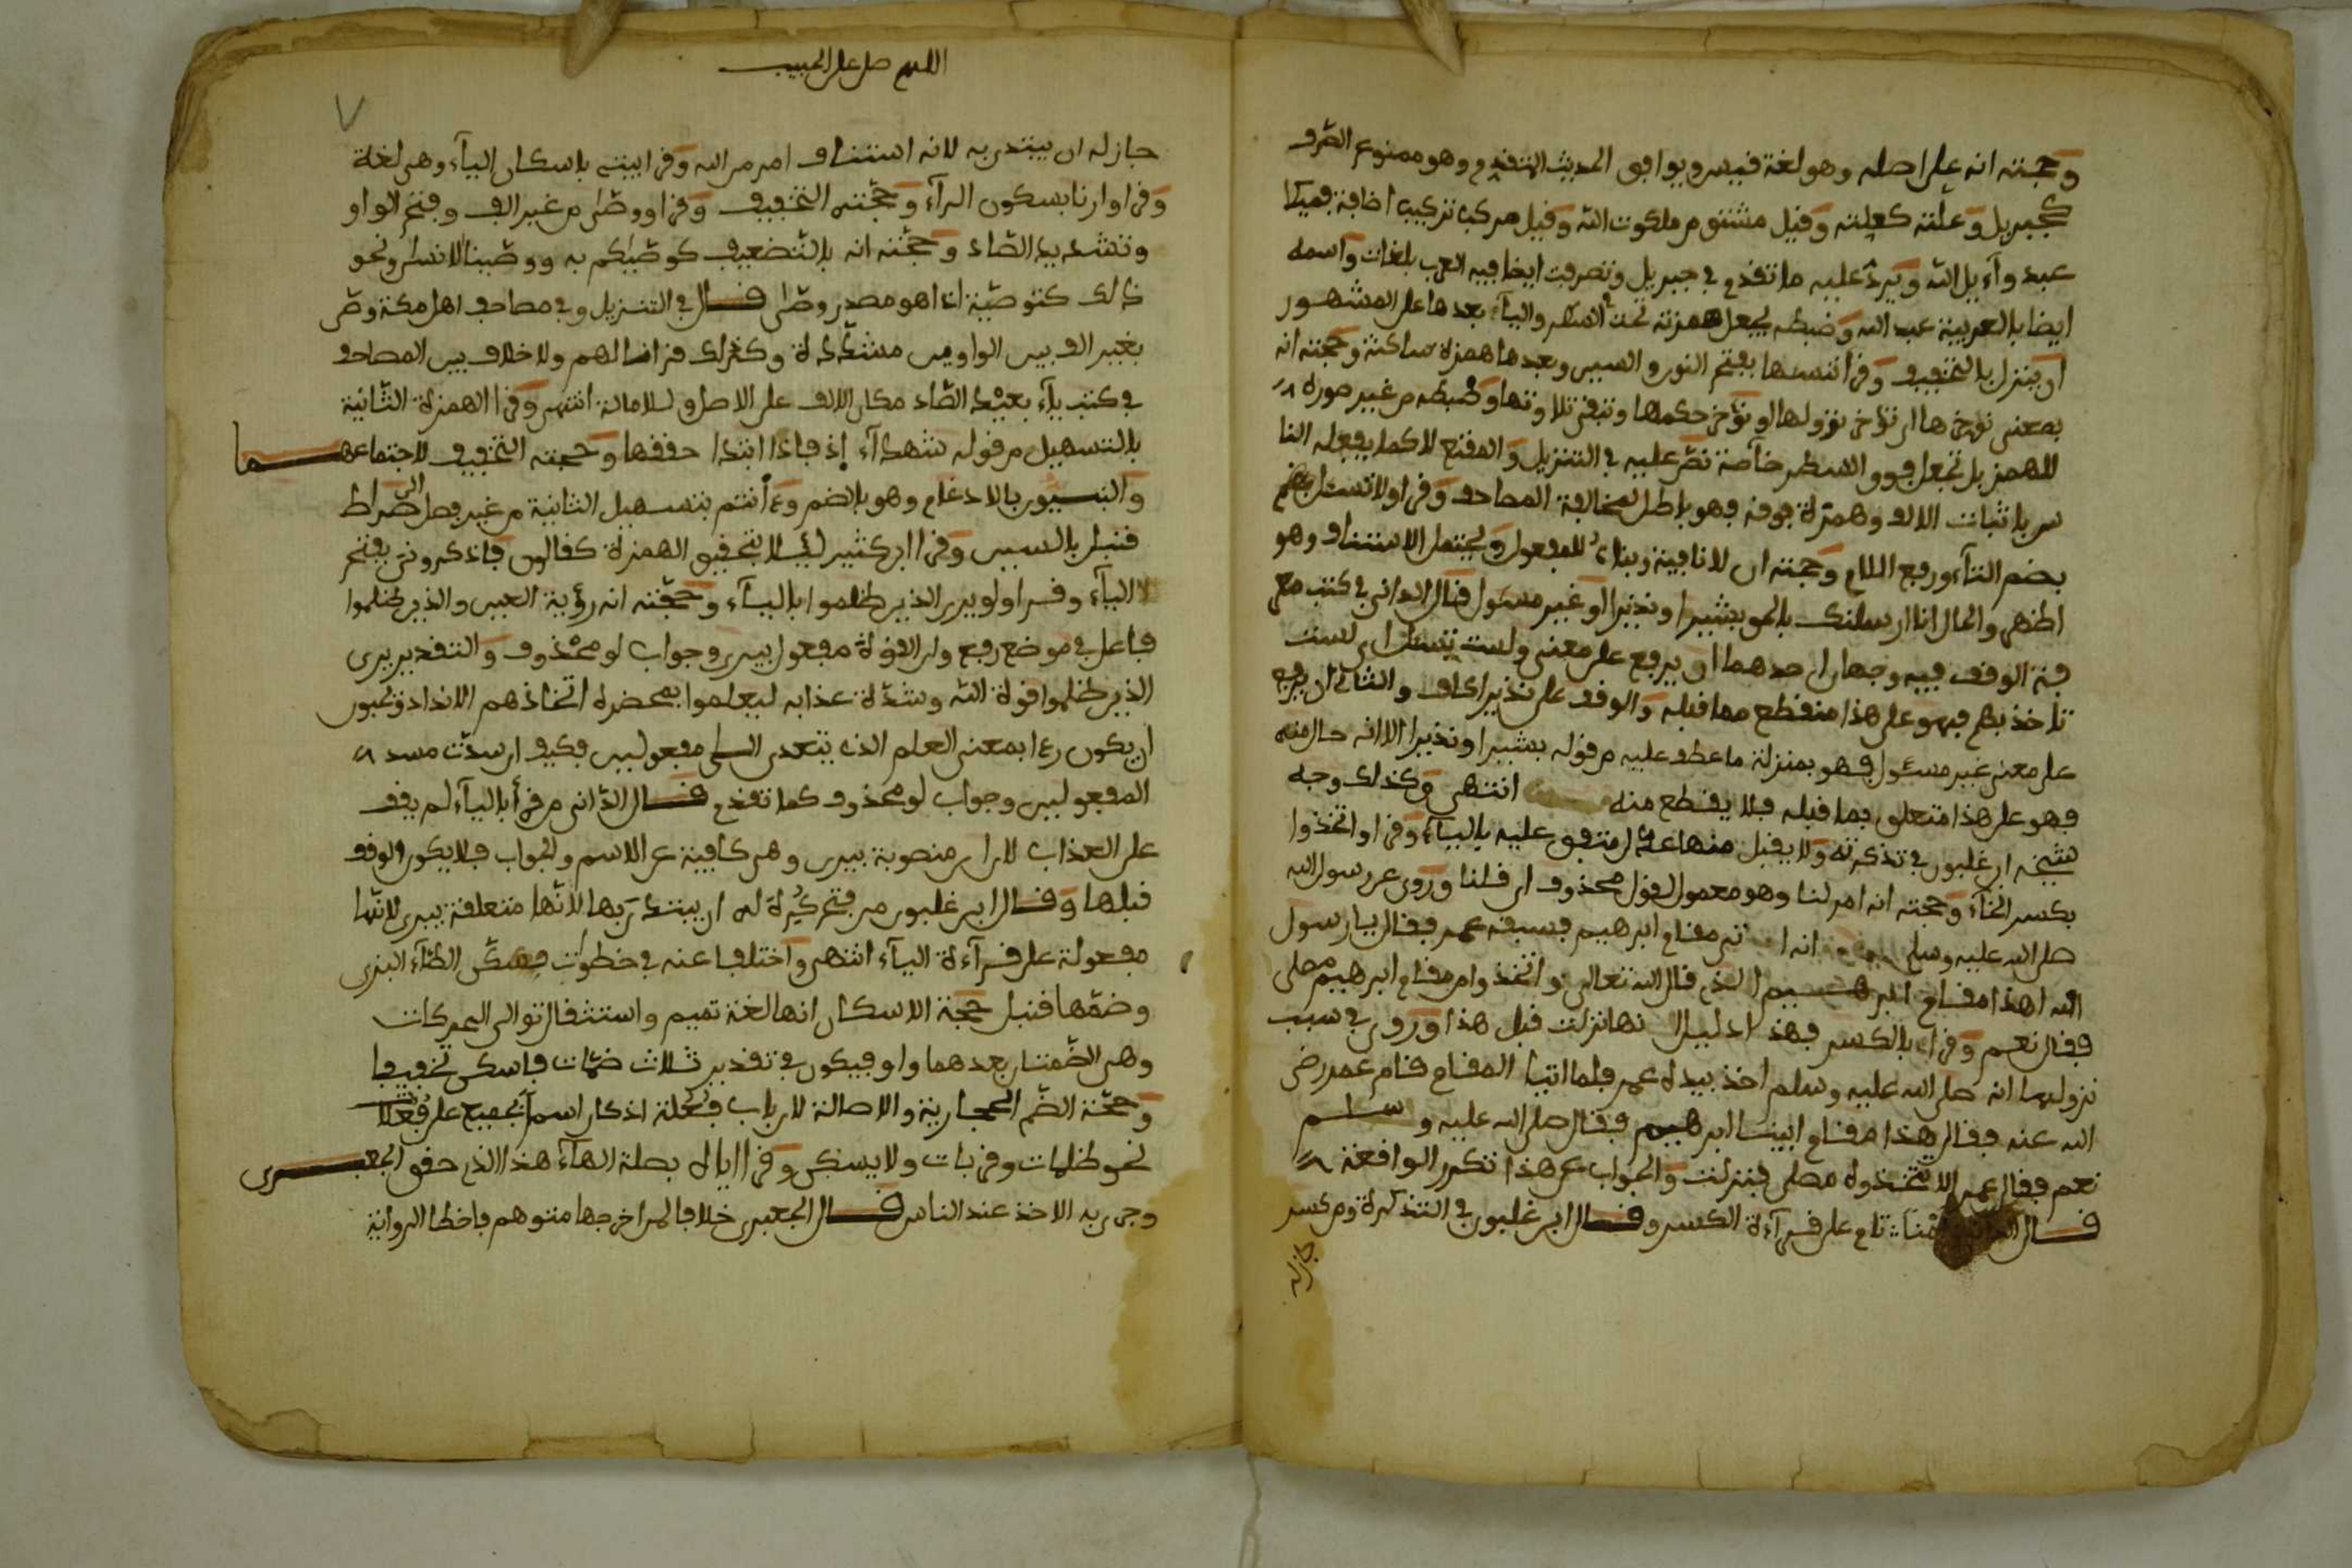 وحجته انه على اصله وهو لغة قيس ويوافق الحديث المتقدم وهو ممنوع الصرف
كجبريل وعلته كعلته وقيل مشتق من ملكوت الله وقيل مركب تركيب اضافة فميكا
عبد وآءيل الله ويرد عليه ما تقدم في جبريل وتصرفت ايضا فيه العرب بلغات واسمه
ايضا بالعربية عبد الله وضبطه بجعل همزته تحت والياء بعدها على المشهور
ان ينزل بالتخفيف وقرا ننسها بفتح النون والسين وبعدها همزة ساكنة وحجته انه
بمعنى نؤخرها اي نؤخر نزولها او نؤخر حكمها وتبقى تلاوتها وضبطه من غير صورة
للهمز بل تجعل فوق السطر خاصة نص عليه في التنزيل والمقنع لا كما يفعله النا
س باثبات الالف وهمزة فوقه فهو باطل لمخالفة المصاحف وقرا ولا تسئل
بضم التاء ورفع اللام وحجته ان لا نافية وبناء للمفعول ويحتمل الاستئناف وهو
اظهر والحال انا ارسلنك بالحق بشيرا ونذيرا وغير مسئول قال الداني في كتب مع
فة الوقف فيه وجهان احدهما ان يرفع على معنى ولست تسئل اي لست
تاخذ بهم فهو على هذا منقطع مما قبله والوقف على نذيرا كاف والثاني ان يرفع
على معنى غير مسئول فهو بمنزلة ما عطف عليه من قوله بشيرا ونذيرا لانه حال منه
فهو على هذا متعلق بما قبله فلا يقطع منه انتهى وكذلك وجه
شيخه ابن غلبون في تذكرته ولا يقبل منها متفق عليه بالياء وقرا واتخذوا
بكسر الخاء وحجته انه امر لنا وهو معمول لقول محذوف اي قلنا وروى عن رسول الله
صلى الله عليه وسلم انه مقام ابرهيم فسبقه عمر فقال يا رسول
الله اهذا مقام ابرهيم الذي قال الله تعالى واتخذوا من مقام ابرهيم مصلى
فقال نعم وقراه بالكسر فهذا دليل انها نزلت قبل هذا وروى في سبب
نزولها انه صلى الله عليه وسلم اخذ بيده عمر فلما اتيا المقام قام عمر رضي
الله عنه فقال هذا مقام ابينا ابرهيم فقال صلى الله عليه وسلم
نعم فقال عمر الا نتخذوه مصلى فنزلت والجواب عن هذا تكرر الواقعة
قال تام على قراءة الكسر وقال ابن غلبون في التذكرة ومن كسر
جاز له
اللهم صل على الحبيب
٧
جاز له ان يبتدي به لانه استئناف امر من الله وقرا ابيتي باسكان الياء وهي لغة
وقرا وارنا بسكون الراء وحجته التخفيف وقرا ووصى من غير الف وفتح الواو
وتشديد الصاد وحجته انه بالتضعيف كوصيكم به ووصينا الانسان ونحو
ذلك كتوصية انما هو مصدر وصى قال في التنزيل وفي مصاحف اهل مكة ووصى
بغير الف بين الواوين مشددة وكذلك قراءتهم ولا خلاف بين المصاحف
في كتب ياء بعيد الصاد مكان الالف على الاصل والامالة انتهى وقرا الهمزة الثانية
بالتسهيل من قوله شهداء إذ فاذا ابتدا حققها وحجته التخفيف لاجتماعهما
والنبيون بالادغام وهو بالضم وءأنتم بتسهيل الثانية من غير فصل الى صراط
قنبل بالسين وقرا ابن كثير ليلا بتحقيق الهمزة كقالون فاذكروني بفتح
الياء وقرا ولو يرى الذين ظلموا بالياء وحجته انه رؤية العين والذين ظلموا
فاعل في موضع رفع وان القوة مفعول بيرى وجواب لو محذوف والتقدير يرى
الذين ظلموا قوة الله وشدة عذابه ليعلموا بمضرة اتخاذهم الانداد ويجوز
ان يكون رءا بمعنى العلم الذي يتعدى الى مفعولين فكيف ان سدت مسد
المفعولين وجواب لو محذوف كما تقدم قال الداني من قرأ بالياء لم يقف
على العذاب لان ان منصوبة بيرى وهي كافية عن الاسم والجواب فلا يكون الوقف
قبلها وقال ابن غلبون من فتح كره له ان يبتدئ بها لانها متعلقة بيرى لانها
مفعولة على قراءة الياء انتهى واختلف عنه في خطوات فسكن الطاء البزي
وضمها قنبل حجة الاسكان انها لغة تميم واستثقال توالي الحركات
وهي الضمتان بعدهما واو فيكون في تقدير ثلاث ضمات فاسكن تخفيفا
وحجة الضم الحجازية والاصالة لان باب فعلة اذ كان اسما يجمع على فعلات
نحو ظلمات وقربات ولا يسكن وقرا اياه بصلة الهاء هذا الذي حقق الجعبرى
وجرى به الاخذ عند الناس قال الجعبري خلافا لمن اخرجها متوهم فاخطا الرواية